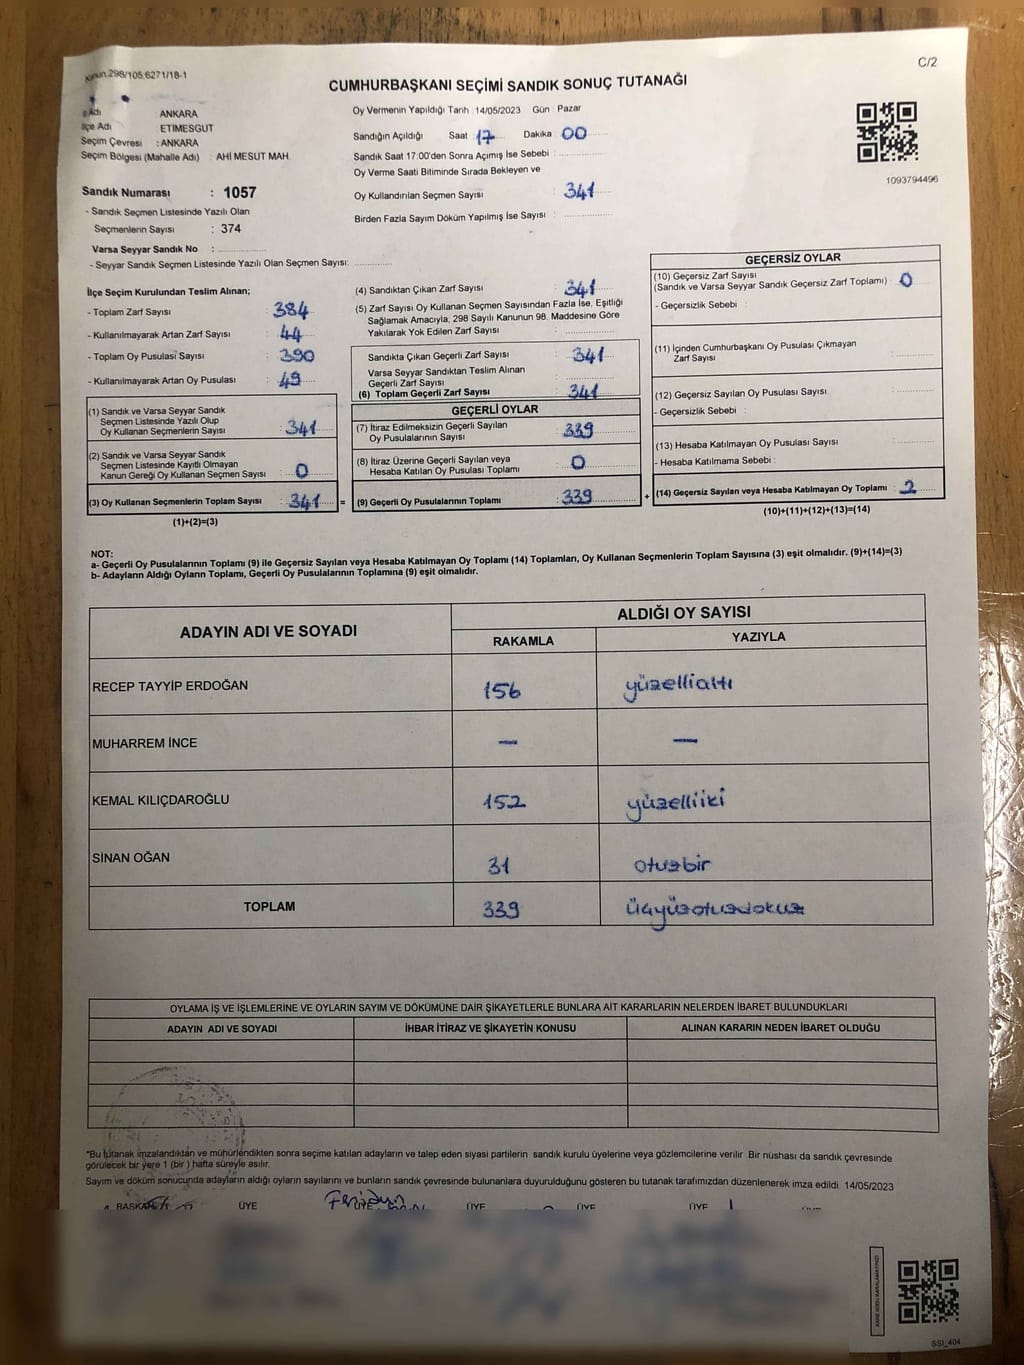 Kanun.298/105.6271/18-1
C/2
CUMHURBAŞKANI SEÇİMİ SANDIK SONUÇ TUTANAĞI
Adı : ANKARA
İlçe Adı : ETİMESGUT
Seçim Çevresi : ANKARA
Seçim Bölgesi (Mahalle Adı) : AHİ MESUT MAH.
Sandık Numarası : 1057
- Sandık Seçmen Listesinde Yazılı Olan
Seçmenlerin Sayısı : 374
Varsa Seyyar Sandık No :
- Seyyar Sandık Seçmen Listesinde Yazılı Olan Seçmen Sayısı:
Oy Vermenin Yapıldığı Tarih : 14/05/2023 Gün : Pazar
Sandığın Açıldığı Saat : 17 Dakika : 00
Sandık Saat 17:00'den Sonra Açımış İse Sebebi :
Oy Verme Saati Bitiminde Sırada Bekleyen ve
Oy Kullandırılan Seçmen Sayısı : 341
Birden Fazla Sayım Döküm Yapılmış İse Sayısı :
1093794496
İlçe Seçim Kurulundan Teslim Alınan;
- Toplam Zarf Sayısı : 384
- Kullanılmayarak Artan Zarf Sayısı : 44
- Toplam Oy Pusulası Sayısı : 390
- Kullanılmayarak Artan Oy Pusulası : 49
(1) Sandık ve Varsa Seyyar Sandık
Seçmen Listesinde Yazılı Olup
Oy Kullanan Seçmenlerin Sayısı : 341
(2) Sandık ve Varsa Seyyar Sandık
Seçmen Listesinde Kayıtlı Olmayan
Kanun Gereği Oy Kullanan Seçmen Sayısı : 0
(3) Oy Kullanan Seçmenlerin Toplam Sayısı : 341 =
(1)+(2)=(3)
(4) Sandıktan Çıkan Zarf Sayısı : 341
(5) Zarf Sayısı Oy Kullanan Seçmen Sayısından Fazla İse, Eşitliği
Sağlamak Amacıyla, 298 Sayılı Kanunun 98. Maddesine Göre
Yakılarak Yok Edilen Zarf Sayısı :
Sandıkta Çıkan Geçerli Zarf Sayısı : 341
Varsa Seyyar Sandıktan Teslim Alınan
Geçerli Zarf Sayısı :
(6) Toplam Geçerli Zarf Sayısı : 341
GEÇERLİ OYLAR
(7) İtiraz Edilmeksizin Geçerli Sayılan
Oy Pusulalarının Sayısı : 339
(8) İtiraz Üzerine Geçerli Sayılan veya
Hesaba Katılan Oy Pusulası Toplamı : 0
(9) Geçerli Oy Pusulalarının Toplamı : 339 +
GEÇERSİZ OYLAR
(10) Geçersiz Zarf Sayısı
(Sandık ve Varsa Seyyar Sandık Geçersiz Zarf Toplamı) : 0
- Geçersizlik Sebebi :
(11) İçinden Cumhurbaşkanı Oy Pusulası Çıkmayan
Zarf Sayısı :
(12) Geçersiz Sayılan Oy Pusulası Sayısı :
- Geçersizlik Sebebi :
(13) Hesaba Katılmayan Oy Pusulası Sayısı :
- Hesaba Katılmama Sebebi :
(14) Geçersiz Sayılan veya Hesaba Katılmayan Oy Toplamı : 2
(10)+(11)+(12)+(13)=(14)
NOT:
a- Geçerli Oy Pusulalarının Toplamı (9) ile Geçersiz Sayılan veya Hesaba Katılmayan Oy Toplamı (14) Toplamları, Oy Kullanan Seçmenlerin Toplam Sayısına (3) eşit olmalıdır. (9)+(14)=(3)
b- Adayların Aldığı Oyların Toplamı, Geçerli Oy Pusulalarının Toplamına (9) eşit olmalıdır.
ADAYIN ADI VE SOYADI
ALDIĞI OY SAYISI
RAKAMLA YAZIYLA
RECEP TAYYİP ERDOĞAN 156 yüzellialtı
MUHARREM İNCE — —
KEMAL KILIÇDAROĞLU 152 yüzelliiki
SİNAN OĞAN 31 otuzbir
TOPLAM 339 üçyüzotuzdokuz
OYLAMA İŞ VE İŞLEMLERİNE VE OYLARIN SAYIM VE DÖKÜMÜNE DAİR ŞİKAYETLERLE BUNLARA AİT KARARLARIN NELERDEN İBARET BULUNDUKLARI
ADAYIN ADI VE SOYADI İHBAR İTİRAZ VE ŞİKAYETİN KONUSU ALINAN KARARIN NEDEN İBARET OLDUĞU
*Bu tutanak imzalandıktan ve mühürlendikten sonra seçime katılan adayların ve talep eden siyasi partilerin sandık kurulu üyelerine veya gözlemcilerine verilir. Bir nüshası da sandık çevresinde
görülecek bir yere 1 (bir) hafta süreyle asılır.
Sayım ve döküm sonucunda adayların aldığı oyların sayılarını ve bunların sandık çevresinde bulunanlara duyurulduğunu gösteren bu tutanak tarafımızdan düzenlenerek imza edildi. 14/05/2023
BAŞKAN ÜYE ÜYE ÜYE ÜYE ÜYE
SSI_404